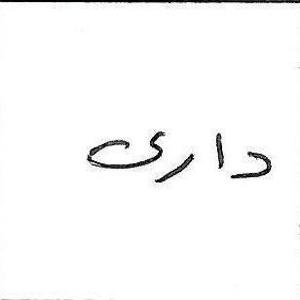 داری